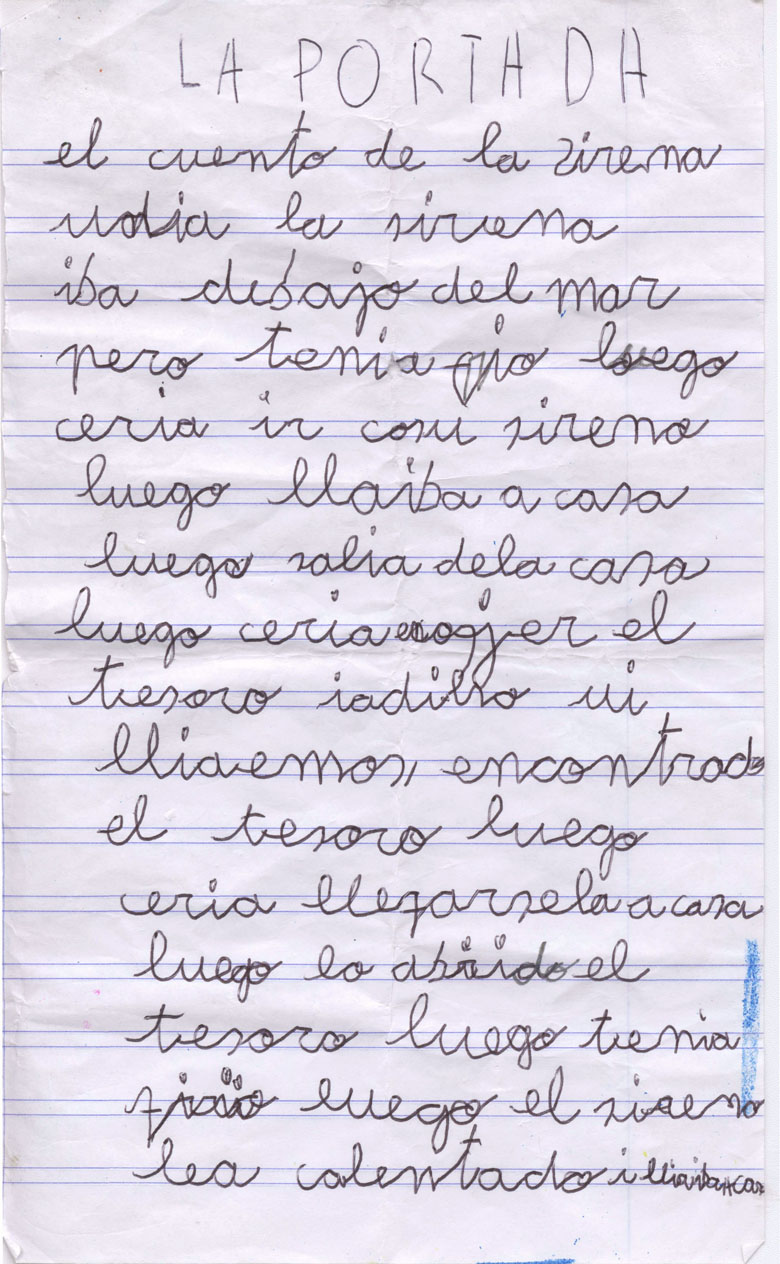 LA PORTADA
el cuento de la sirena
udia la sirena
iba debajo del mar
pero tenia luego
ceria ir cosu sireno
luego llaiba a casa
luego salia dela casa
luego ceria cogjer el
tesoro iadilho ui
lliaemos, encontrado
el tesoro luego
ceria llefarsela a casa
luego lo abiido el
tesoro luego tenia
luego el sireno
lea calentado i lliaiba